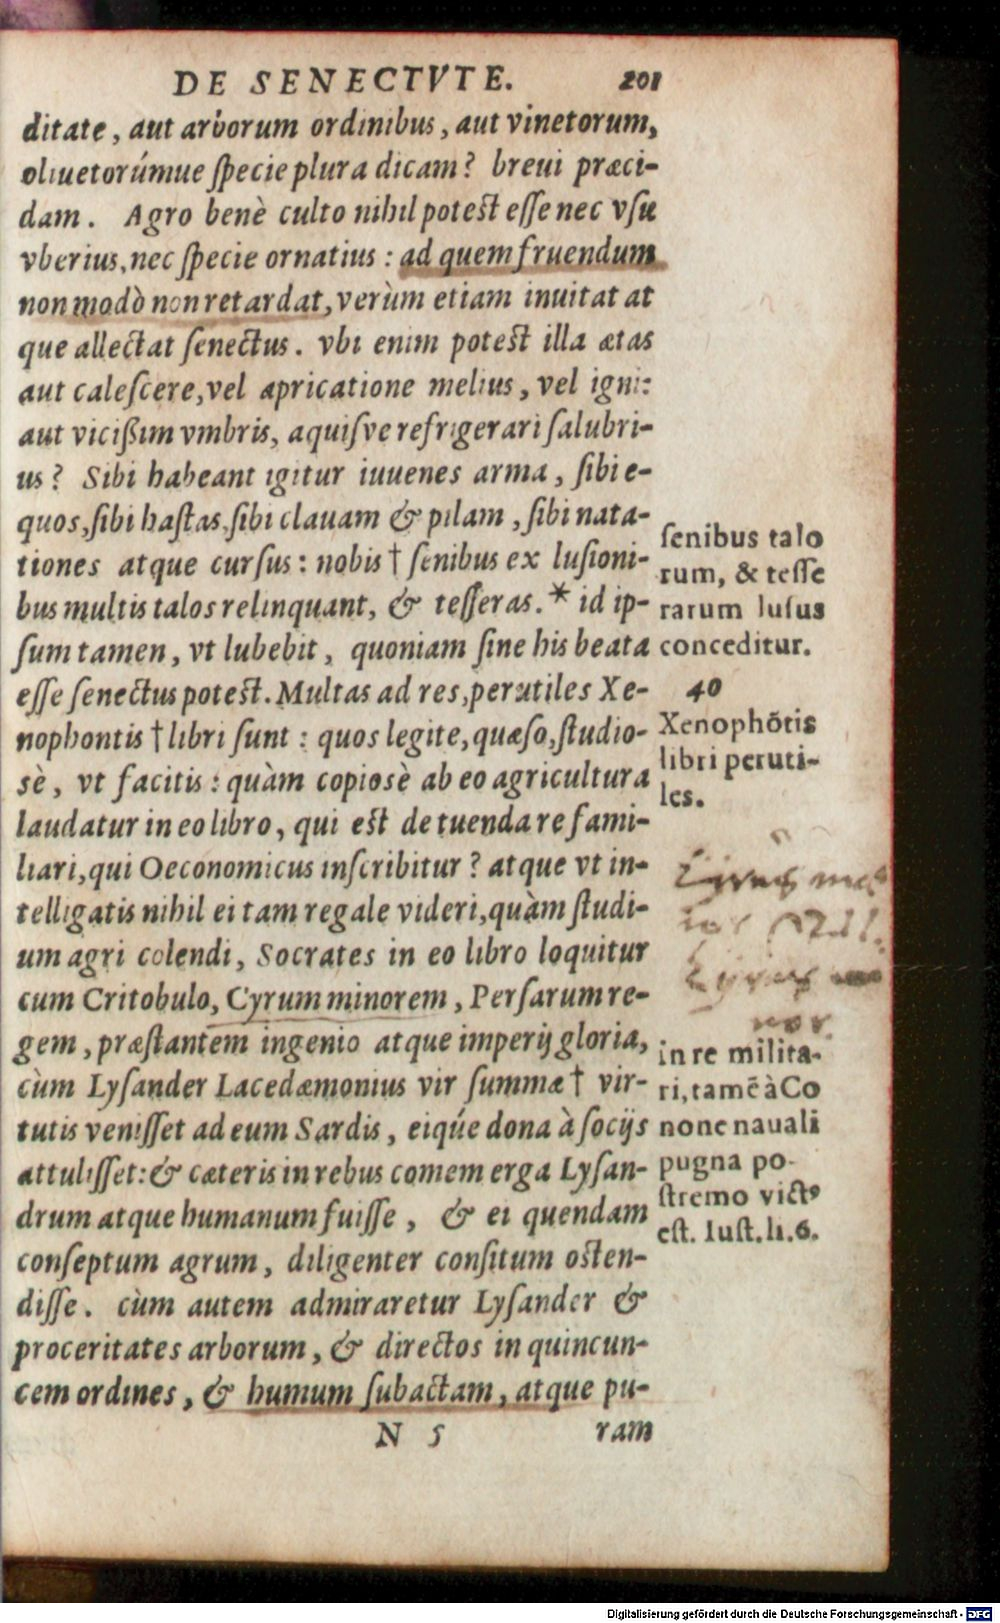 DE SENECTVTE. 201
ditate, aut arborum ordinibus, aut vinetorum,
oliuetorúmue ſpecie plura dicam? breui præci-
dam. Agro benè culto nihil poteſt eſſe nec vſu
vberius, nec ſpecie ornatius: ad quem fruendum
non modò non retardat, verùm etiam inuitat at
que allectat ſenectus. vbi enim poteſt illa ætas
aut caleſcere, vel apricatione melius, vel igni:
aut viciſsim vmbris, aquiſve refrigerari ſalubri-
us? Sibi habeant igitur iuuenes arma, ſibi e-
quos, ſibi haſtas, ſibi clauam & pilam, ſibi nata-
tiones atque curſus: nobis † ſenibus ex luſioni-
bus multis talos relinquant, & teſſeras. * id ip-
ſum tamen, vt lubebit, quoniam ſine his beata
eſſe ſenectus poteſt. Multas ad res, perutiles Xe-
nophontis † libri ſunt: quos legite, quæſo, ſtudio-
sè, vt facitis: quàm copiosè ab eo agricultura
laudatur in eo libro, qui eſt de tuenda re fami-
liari, qui Oeconomicus inſcribitur? atque vt in-
telligatis nihil ei tam regale videri, quàm ſtudi-
um agri colendi, Socrates in eo libro loquitur
cum Critobulo, Cyrum minorem, Perſarum re-
gem, præſtantem ingenio atque imperij gloria,
cùm Lyſander Lacedæmonius vir ſummæ † vir-
tutis veniſſet ad eum Sardis, eiqúe dona à ſocijs
attuliſſet: & cæteris in rebus comem erga Lyſan-
drum atque humanum fuiſſe, & ei quendam
conſeptum agrum, diligenter conſitum oſten-
diſſe. cùm autem admiraretur Lyſander &
proceritates arborum, & directos in quincun-
cem ordines, & humum ſubactam, atque pu-
N 5 ram
ſenibus talo
rum, & teſſe
rarum luſus
conceditur.
40
Xenophōtis
libri peruti-
les.
Cyrus
Cyrus
nor
in re milita-
ri, tamē à Co
none nauali
pugna po-
ſtremo victꝰ
eſt. Iuſt. li. 6.
Digitalisierung gefördert durch die Deutsche Forschungsgemeinschaft - DFG